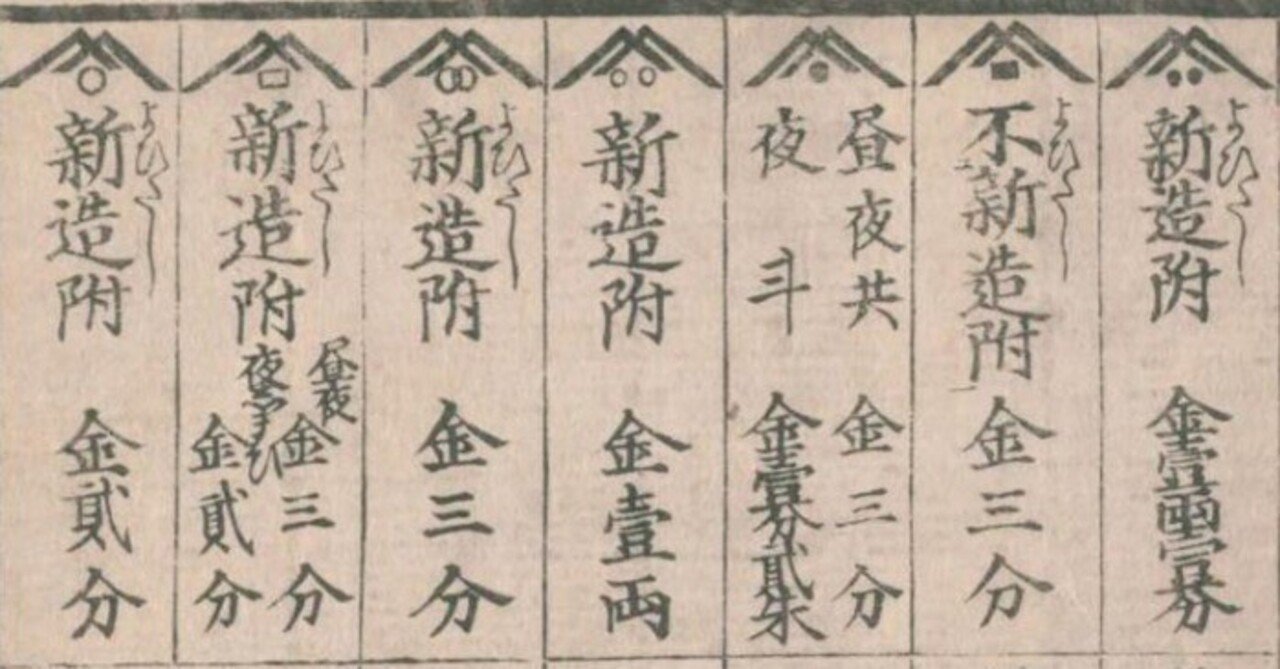 よひたし
新造附 金壹両壹分
よひたし
不新造附 金三分
昼夜共 金三分
夜斗 金壹分貳朱
新造附 金壹両
よひたし
新造附 金三分
よひたし
新造附
昼夜 金三分
夜 金貳分
よひたし
新造附 金貳分